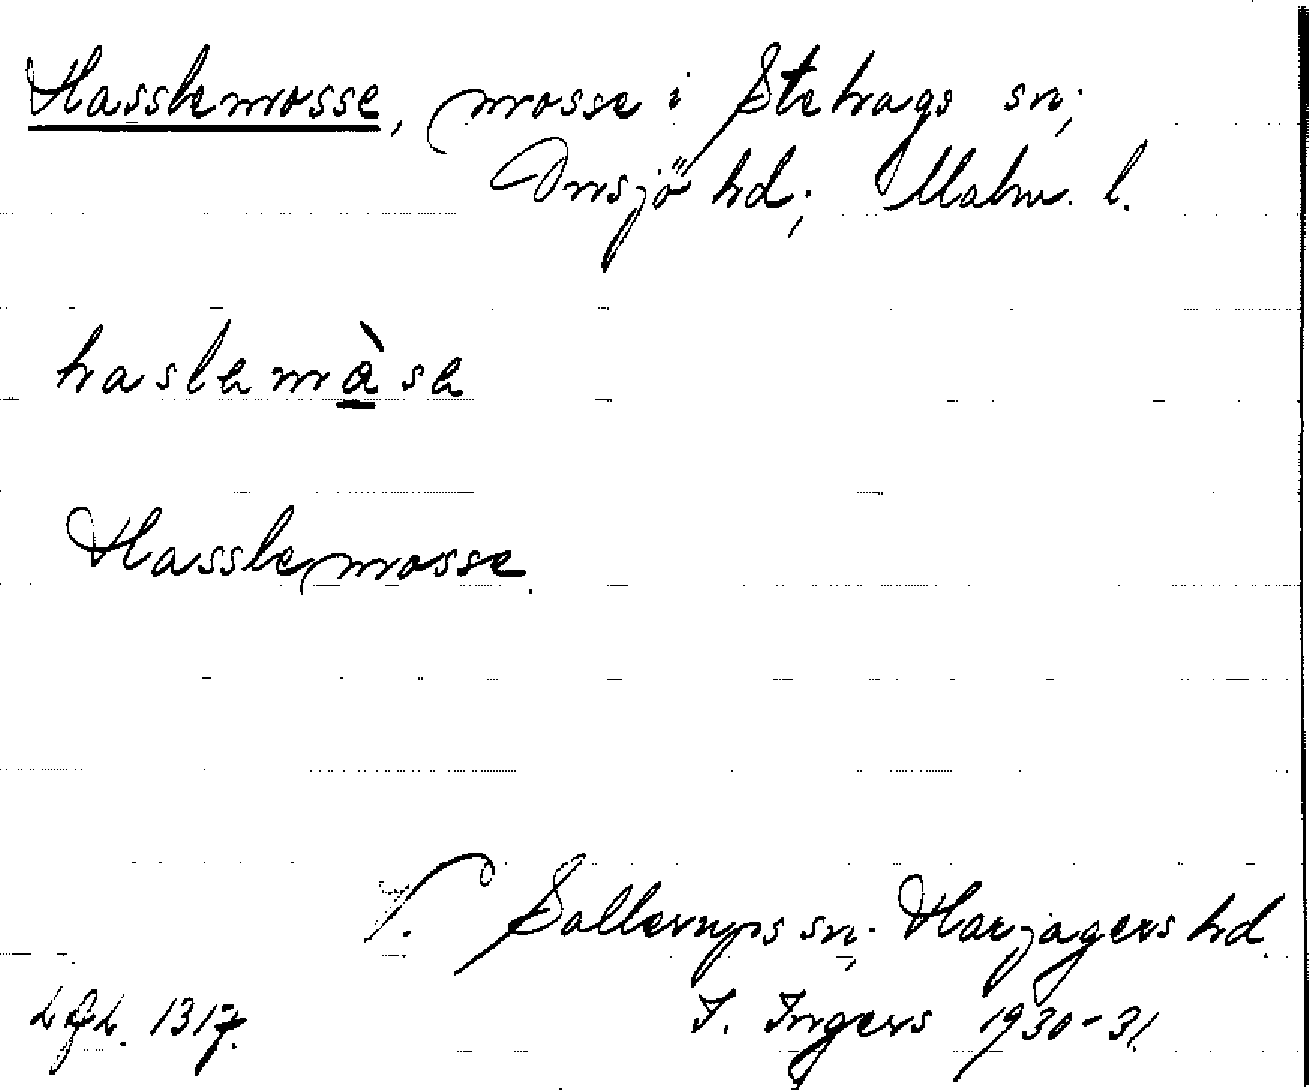 Hasslemosse, mosse i Stehags sn;
Onsjö hd; Malm. l.
haslemàsa
Hasslemosse.
V. Sallerups sn; Harjagers hd.
LAL. 1317. I. Ingers 1930-31.